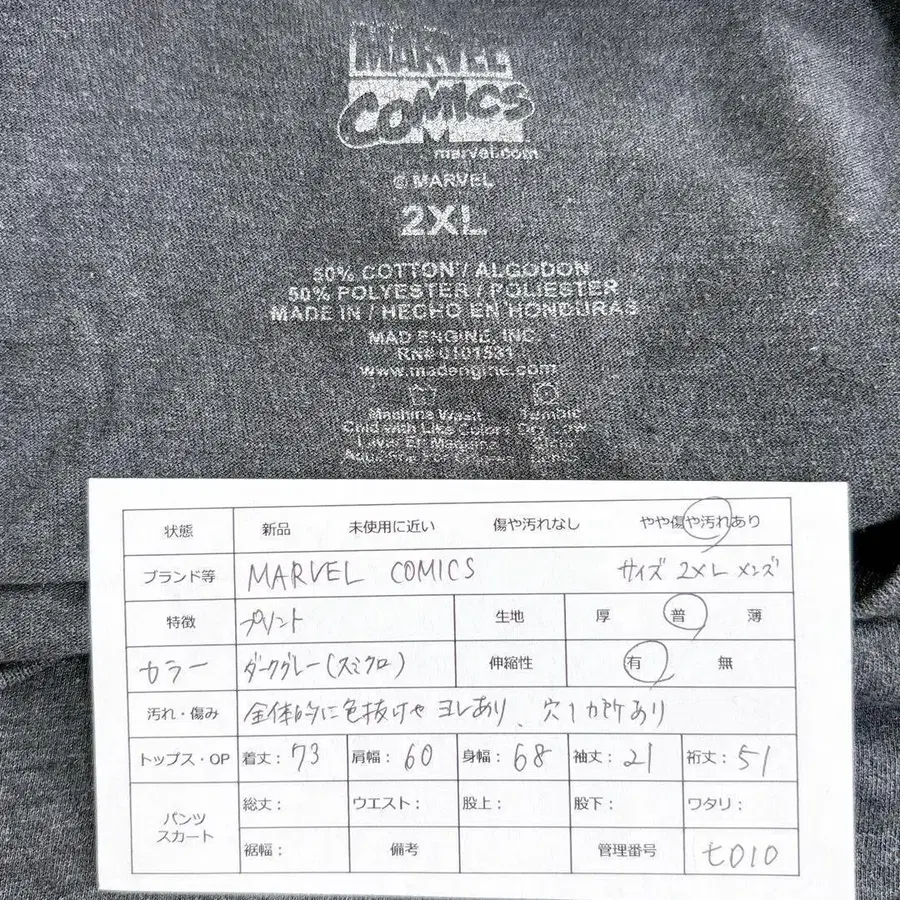 MARVEL
COMICS
marvel.com
© MARVEL
2XL
50% COTTON / ALGODON
50% POLYESTER / POLIESTER
MADE IN / HECHO EN HONDURAS
MAD ENGINE, INC.
RN# 0101531
www.madengine.com
Machine Wash Tumble
Cold with Like Colors Dry Low
状態 新品 未使用に近い 傷や汚れなし やや傷や汚れあり
ブランド等 MARVEL COMICS サイズ 2XL メンズ
特徴 プリント 生地 厚 普 薄
カラー ダークグレー(スミクロ) 伸縮性 有 無
汚れ・傷み 全体的に色抜けや ヨレあり、穴1カ所あり
トップス・OP 着丈: 73 肩幅: 60 身幅: 68 袖丈: 21 裄丈: 51
パンツ
スカート
総丈: ウエスト: 股上: 股下: ワタリ:
裾幅: 備考 管理番号 t010